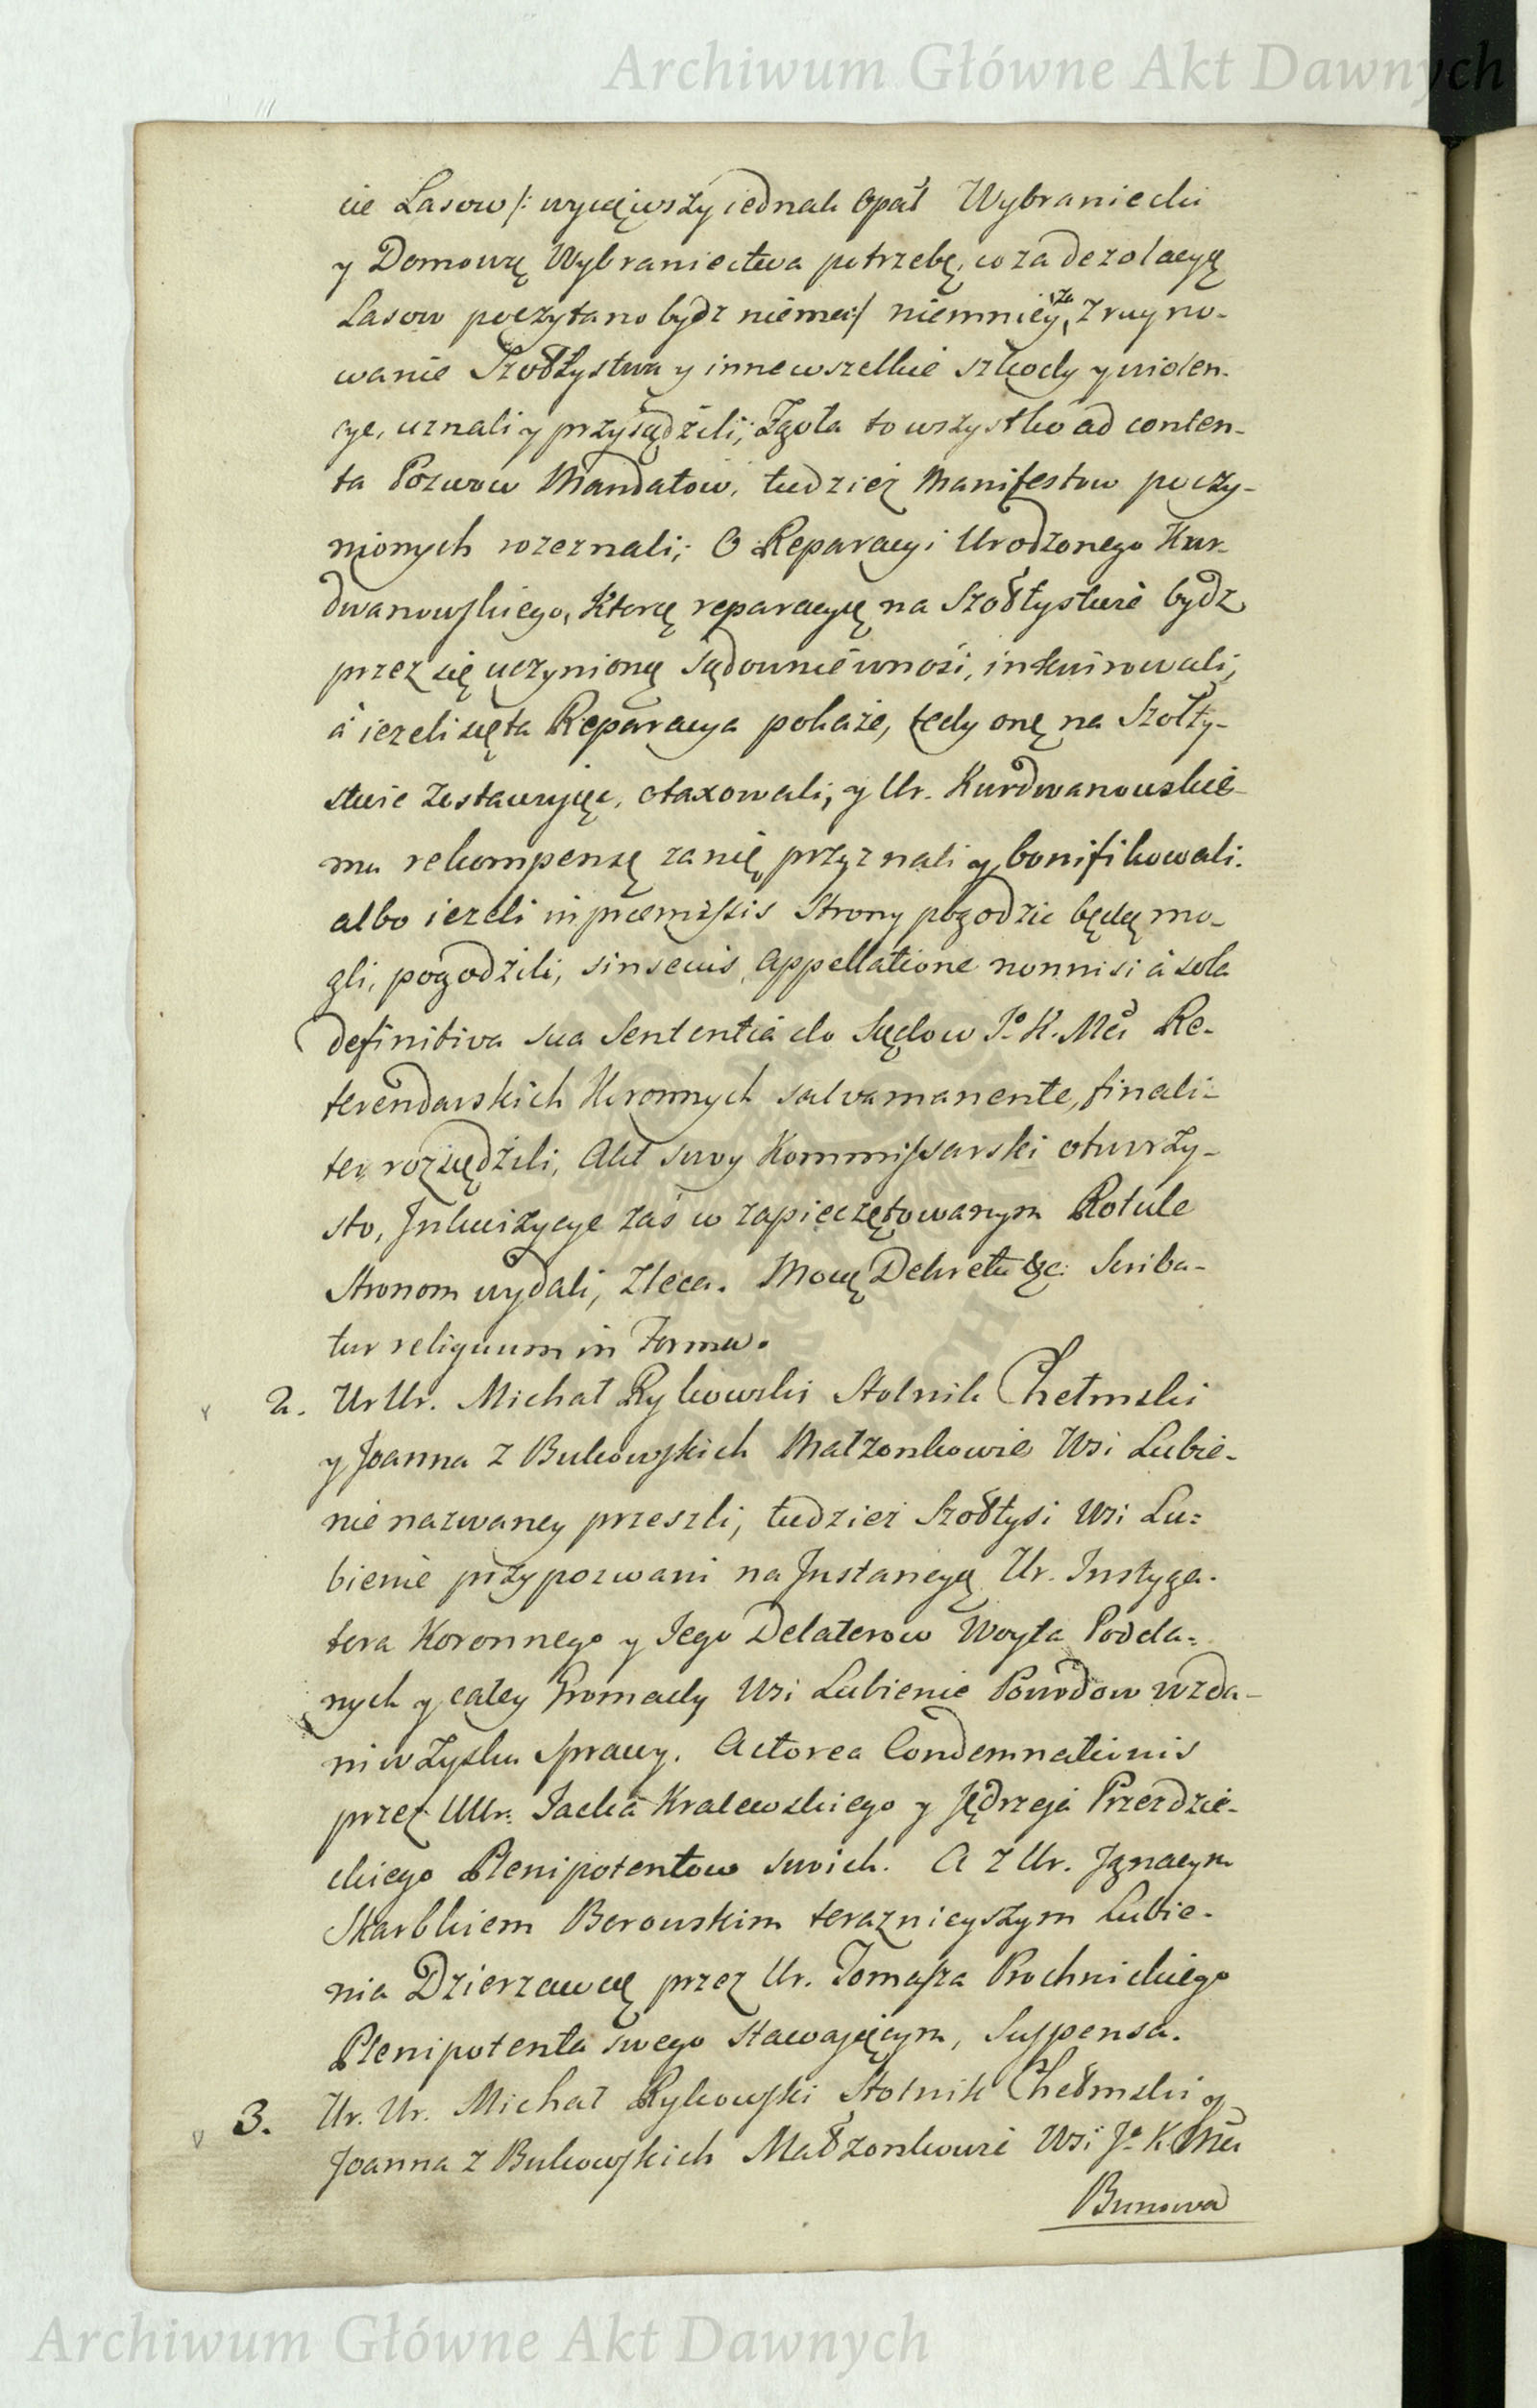 Archiwum Główne Akt Dawnych
cie Lasow /: wyiąwszy iednak Opał Wybraniecki
y Domową Wybraniectwa potrzebę, co za dezolacyą
Lasow poczytano bydz niema :/ niemniey za zruyno-
wanie Szołtystwa y inne wszelkie szkody y violen-
cye, uznali y przysądzili; Zgoła to wszystko ad conten-
ta Pozwow Mandatow, tudziez Manifestow poczy-
nionych rozeznali; O Reparacyi Urodzonego Kur-
dwanowskiego, ktorą reparacyą na Szołtystwie bydz
przez się uczynioną sądownie wnosi, inkwirowali;
á iezeli się ta Reparacya pokaże, tedy onę na Szołty-
stwie zostawuiąc, otaxowali; y Ur. Kurdwanowskie-
mu rekompensę za nię przyznali y bonifikowali.
albo iezeli in præmissis Strony pogodzic będą mo-
gli, pogodzili, sin secus, Appellatione nonnisi á sola
definitiva sua Sententia do Sądow J.o K. Mci Re-
ferendarskich Koronnych salva manente, finali-
ter rozsądzili, Akt swoy Kommissarski otworzy-
sto, Inkwizycye zaś w zapieczętowanym Rotule
Stronom wydali, Zleca. Mocą Dekretu &c: Scriba-
tur reliquum in Forma.
2. Ur Ur. Michał Rykowski Stolnik Chełmski
y Joanna z Bukowskich Małzonkowie Wsi Lubie-
nie nazwaney przeszli, tudziez Szołtysi Wsi Lu=
bienie przypozwani na Instancyą Ur. Instyga-
tora Koronnego y Jego Delatorow Woyta Podda=
nych y całey Gromady Wsi Lubienie Powodow wzda-
ni w Zysku Sprawy. Actorea Condemnationis
przez UUr. Jacka Kralewskiego y Jędrzeja Przezdzie-
ckiego Plenipotentow swoich. A z Ur. Ignacym
Skarbkiem Borowskim teraznieyszym Lubie-
nia Dzierzawcą przez Ur. Tomasza Prochnickiego
Plenipotenta swego stawaiącym, Suspensa.
3. Ur. Ur. Michał Rykowski Stolnik Chełmski y
Joanna z Bukowskich Małzonkowie Wsi J.o K. Mci
Bunowa
Archiwum Główne Akt Dawnych